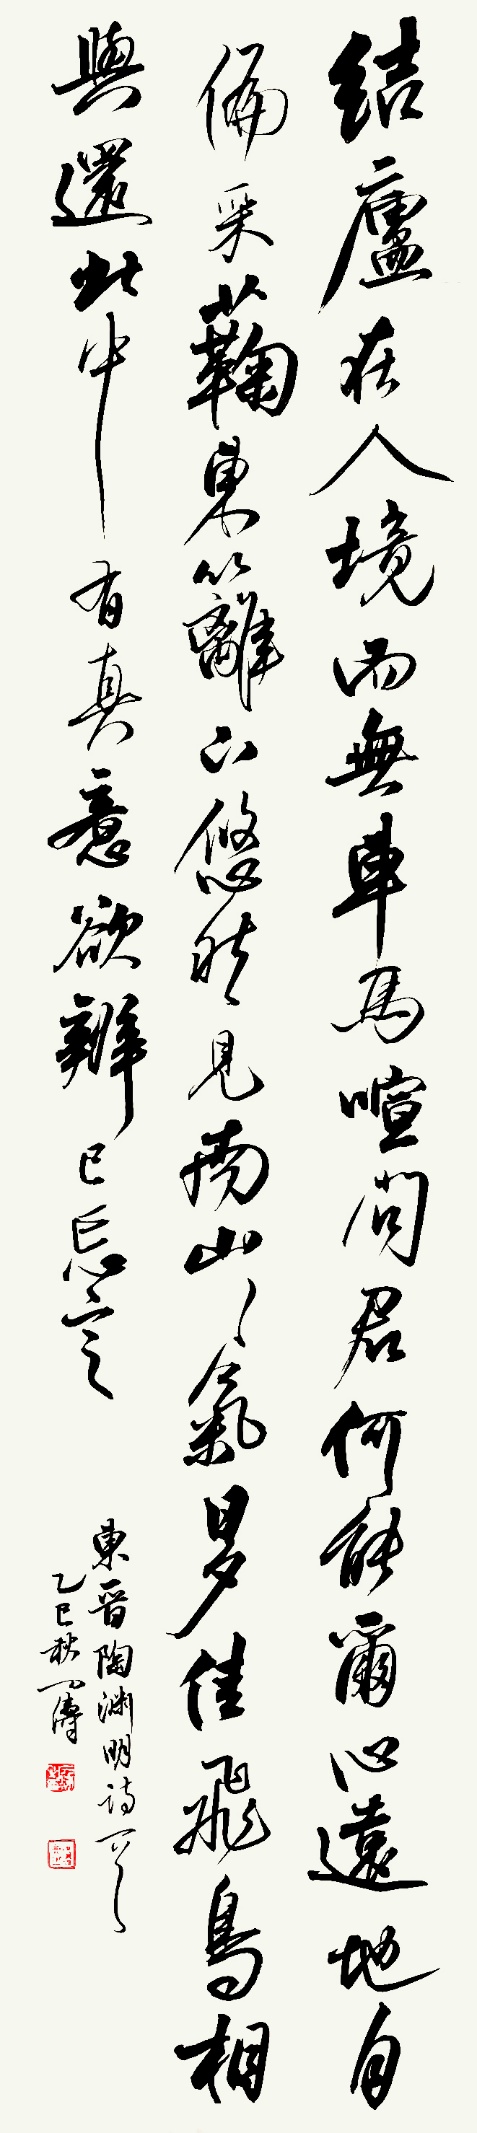 結廬在人境而無車馬喧問君何能爾心遠地自
偏采蘜東籬下悠然見南山〻氣日夕佳飛鳥相
與還此中有真意欲辨已忘言
東晉陶淵明詩一首
乙巳秋一濤